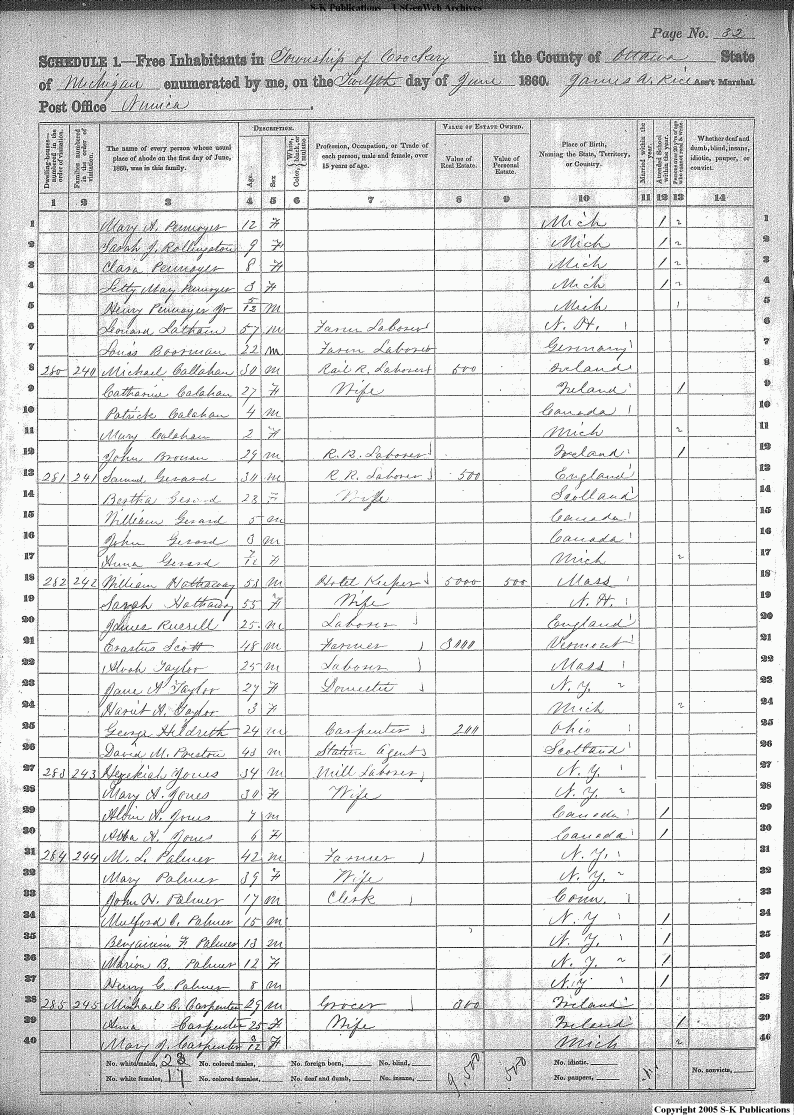 S-K Publications - USGenWeb Archives
Page No. 32
SCHEDULE 1.—Free Inhabitants in Township of Crockery in the County of Ottawa State
of Michigan enumerated by me, on the Twelfth day of June 1860. James A. Rice Ass't Marshal
Post Office Nunica
Dwelling-houses numbered in the order of visitation. Families numbered in the order of visitation. The name of every person whose usual place of abode on the first day of June, 1860, was in this family. DESCRIPTION. Age. Sex. Color, White, black, or mulatto. Profession, Occupation, or Trade of each person, male and female, over 15 years of age. VALUE OF ESTATE OWNED. Value of Real Estate. Value of Personal Estate. Place of Birth, Naming the State, Territory, or Country. Married within the year. Attended School within the year. Persons over 20 y'rs of age who cannot read & write. Whether deaf and dumb, blind, insane, idiotic, pauper, or convict.
1 2 3 4 5 6 7 8 9 10 11 12 13 14
1 Mary A. Pennoyer 12 F Mich 1 2 1
2 Sarah J. Rollingston 9 F Mich 1 2 2
3 Clara Pennoyer 8 F Mich 1 2 3
4 Letty May Pennoyer 3 F Mich 1 2 4
5 Henry Pennoyer Jr 5/12 m Mich 1 5
6 Leonard Latham 57 m Farm Laborer N. H. 6
7 Louis Boorman 22 m Farm Laborer Germany 7
8 280 240 Michael Callahan 30 m Rail R. Laborer 500 Ireland 8
9 Catharine Calahan 27 F Wife Ireland 1 9
10 Patrick Calahan 4 m Canada 10
11 Mary Calahan 2 F Mich 2 11
12 John Bronan 29 m R.R. Laborer Ireland 1 12
13 281 241 Samuel Gerard 30 m R R. Laborer 500 England 13
14 Bertha Gerard 28 F Wife Scotland 14
15 William Gerard 5 m Canada 15
16 John Gerard 3 m Canada 16
17 Anna Gerard F Mich 2 17
18 282 242 William Hathaway 58 m Hotel Keeper 5000 500 Mass 18
19 Sarah Hathaway 55 F Wife N. H. 19
20 James Russell 25 m Laborer England 20
21 Erastus Scott 48 m Farmer 3000 Vermont 21
22 Taylor 25 m Laborer Mass 22
23 Jane A Taylor 27 F Domestic N. Y. 2 23
24 Hariet A. Taylor 3 F Mich 2 24
25 George Hildreth 24 m Carpenter 200 Ohio 25
26 David M. Preston 43 m Station Agent Scotland 26
27 283 243 Hezekiah Jones 34 m Mill Laborer N. Y. 27
28 Mary A. Jones 30 F Wife N. Y. 2 28
29 Albin A. Jones 7 m Canada 1 29
30 Alba A. Jones 6 F Canada 1 30
31 284 244 M. L. Palmer 42 m Farmer N. Y. 31
32 Mary Palmer 39 F Wife N. Y. 2 32
33 John H. Palmer 17 m Clerk Conn. 33
34 Mulford C. Palmer 15 m N. Y 1 34
35 Benjamin F. Palmer 13 m N. Y. 1 35
36 Marion B. Palmer 12 F N. Y. 2 1 36
37 Henry G. Palmer 8 m N.Y. 1 37
38 285 245 Michael C. Carpenter 29 m Grocer 300 Ireland 38
39 Anna Carpenter 25 F Wife Ireland 1 39
40 Mary J. Carpenter F Mich 2 40
No. white males, 23 No. colored males, No. foreign born, No. blind, 9,500 500 No. idiotic,
No. white females, 17 No. colored females, No. deaf and dumb, No. insane, No. paupers, No. convicts,
Copyright 2005 S-K Publications